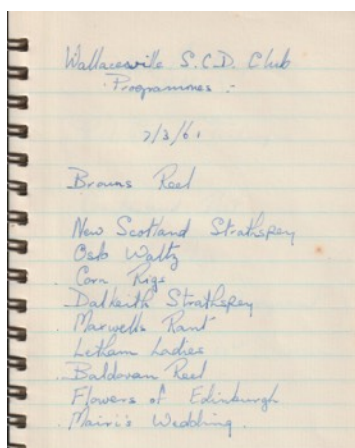 Wallaceville S.C.D. Club
Programmes :-
7/3/61
Browns Reel
New Scotland Strathspey
Oslo Waltz
Corn Rigs
Dalkeith Strathspey
Maxwells Rant
Letham Ladies
Baldovan Reel
Flowers of Edinburgh
Mairi's Wedding.